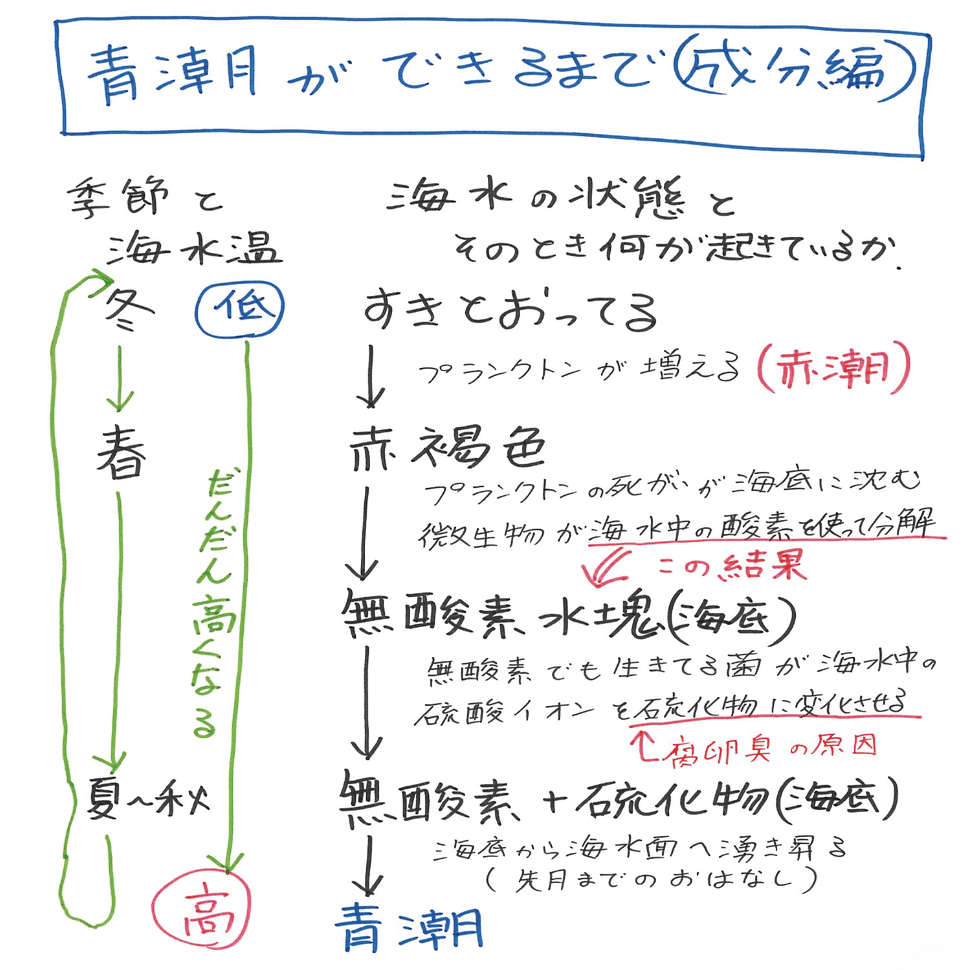 青潮ができるまで(成分編)
季節と
海水温
海水の状態と
そのとき何が起きているか.
冬 低 すきとおってる
プランクトンが増える(赤潮)
春
赤褐色
だんだん高くなる
プランクトンの死がいが海底に沈む
微生物が海水中の酸素を使って分解
この結果
無酸素水塊(海底)
無酸素でも生きてる菌が海水中の
硫酸イオンを硫化物に変化させる
腐卵臭の原因
夏~秋
無酸素+硫化物(海底)
海底から海水面へ湧き昇る
(先月までのおはなし)
高
青潮